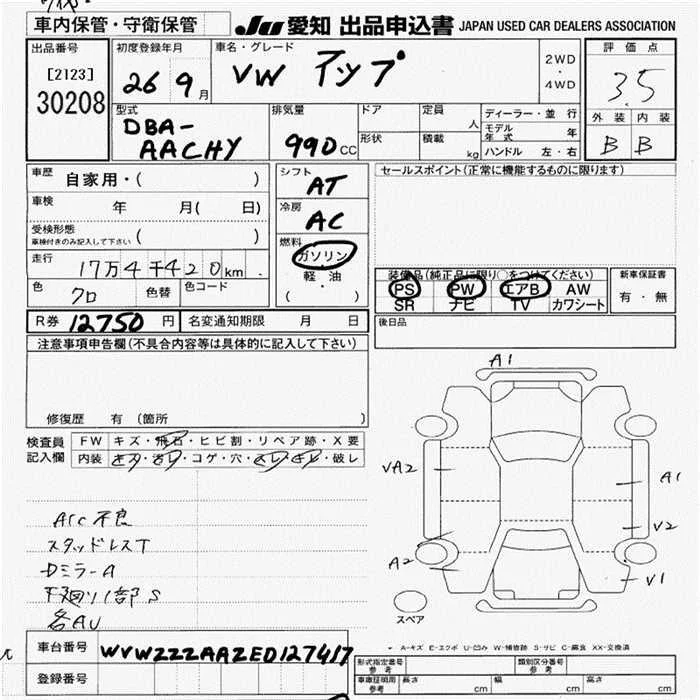 車内保管・守衛保管
JU 愛知 出品申込書 JAPAN USED CAR DEALERS ASSOCIATION
出品番号
[2123]
30208
初度登録年月
26 9月
車名・グレード
VW アップ
2WD
・
4WD
評価点
3.5
外装 内装
B B
型式
DBA-
AACHY
排気量
990cc
ドア
形状
定員
人
積載
kg
ディーラー・並行
モデル年式 年
ハンドル 左・右
車歴 自家用・( )
車検 年 月( 日)
受検形態
車検付きのみ記入して下さい ( )
走行 17万4千420km
色 クロ 色替 色コード
シフト
AT
冷房
AC
燃料
ガソリン
・
軽・油
( )
セールスポイント(正常に機能するものに限ります)
装備品(純正品に限り○をつけてください)
PS PW エアB AW
SR ナビ TV カワシート
新車保証書
有・無
R券 12750円 名変通知期限 月 日
後日品
注意事項申告欄(不具合内容等は具体的に記入して下さい)
修復歴 有 (箇所 )
検査員
記入欄
FW キズ・飛石・ヒビ割・リペア跡・X要
内装 キズ・汚レ・コゲ・穴・スレ・キレ・破レ
A/C 不良
スタッドレスT
DミラーA
下廻り1部S
各AU
A1
VA2
A1
V2
A2
V1
スペア
A-キズ E-エクボ U-凹み W-補修跡 S-サビ C-腐食 XX-交換済
車台番号 WVWZZZAAZED127417
登録番号
形式指定番号
参考
類別区分番号
参考
車庫証明用
参考
長さ cm 幅 cm 高さ cm